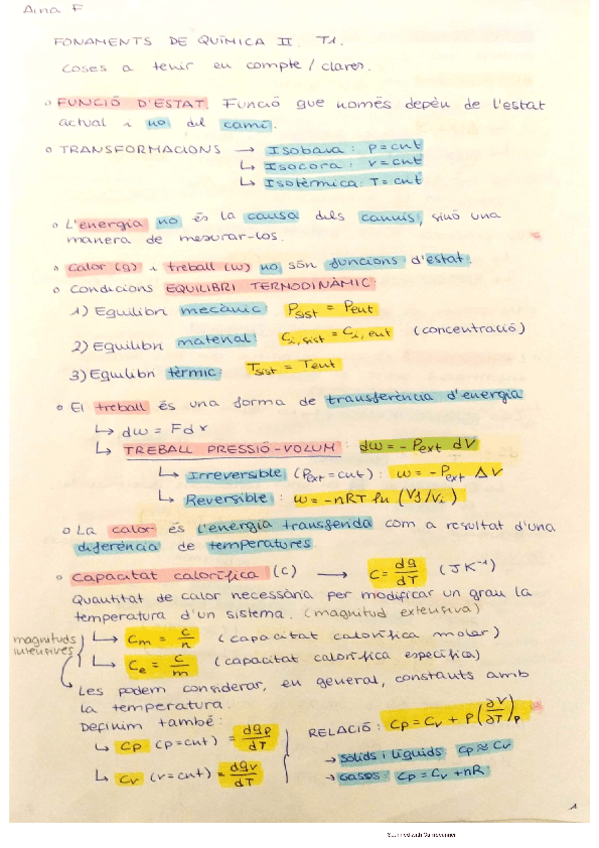 Aina F
FONAMENTS DE QUÍMICA II. T1.
coses a tenir en compte / clares.
FUNCIÓ D'ESTAT. Funció que només depèn de l'estat
actual i no del camí.
TRANSFORMACIONS → Isobara: p=cnt
↳ Isocora: v=cnt
↳ Isotèrmica: T=cnt
L'energia no és la causa dels canvis, sinó una
manera de mesurar-los.
Calor (q) i treball (w) no són funcions d'estat.
Condicions EQUILIBRI TERMODINÀMIC:
1) Equilibri mecànic: Psist = Pent
2) Equilibri material: Ci,sist = Ci,ent (concentració)
3) Equilibri tèrmic: Tsist = Tent
El treball és una forma de transferència d'energia
↳ dw = Fdx
↳ TREBALL PRESSIÓ-VOLUM: dw = -Pext dV
↳ Irreversible (Pext=cnt): w = -Pext ΔV
↳ Reversible: w = -nRT ln (Vf/Vi)
La calor és l'energia transferida com a resultat d'una
diferència de temperatures.
Capacitat calorífica (C) → C = dq/dT (J K⁻¹)
Quantitat de calor necessària per modificar un grau la
temperatura d'un sistema. (magnitud extensiva)
magnituds
intensives
↳ Cm = C/n (capacitat calorífica molar)
↳ Ce = C/m (capacitat calorífica específica)
Les podem considerar, en general, constants amb
la temperatura.
Definim també:
↳ Cp (p=cnt) = dqp/dT
↳ Cv (v=cnt) = dqv/dT
RELACIÓ: Cp = Cv + P(∂V/∂T)p
→ Sòlids i líquids: Cp ≈ Cv
→ Gasos: Cp = Cv + nR
1